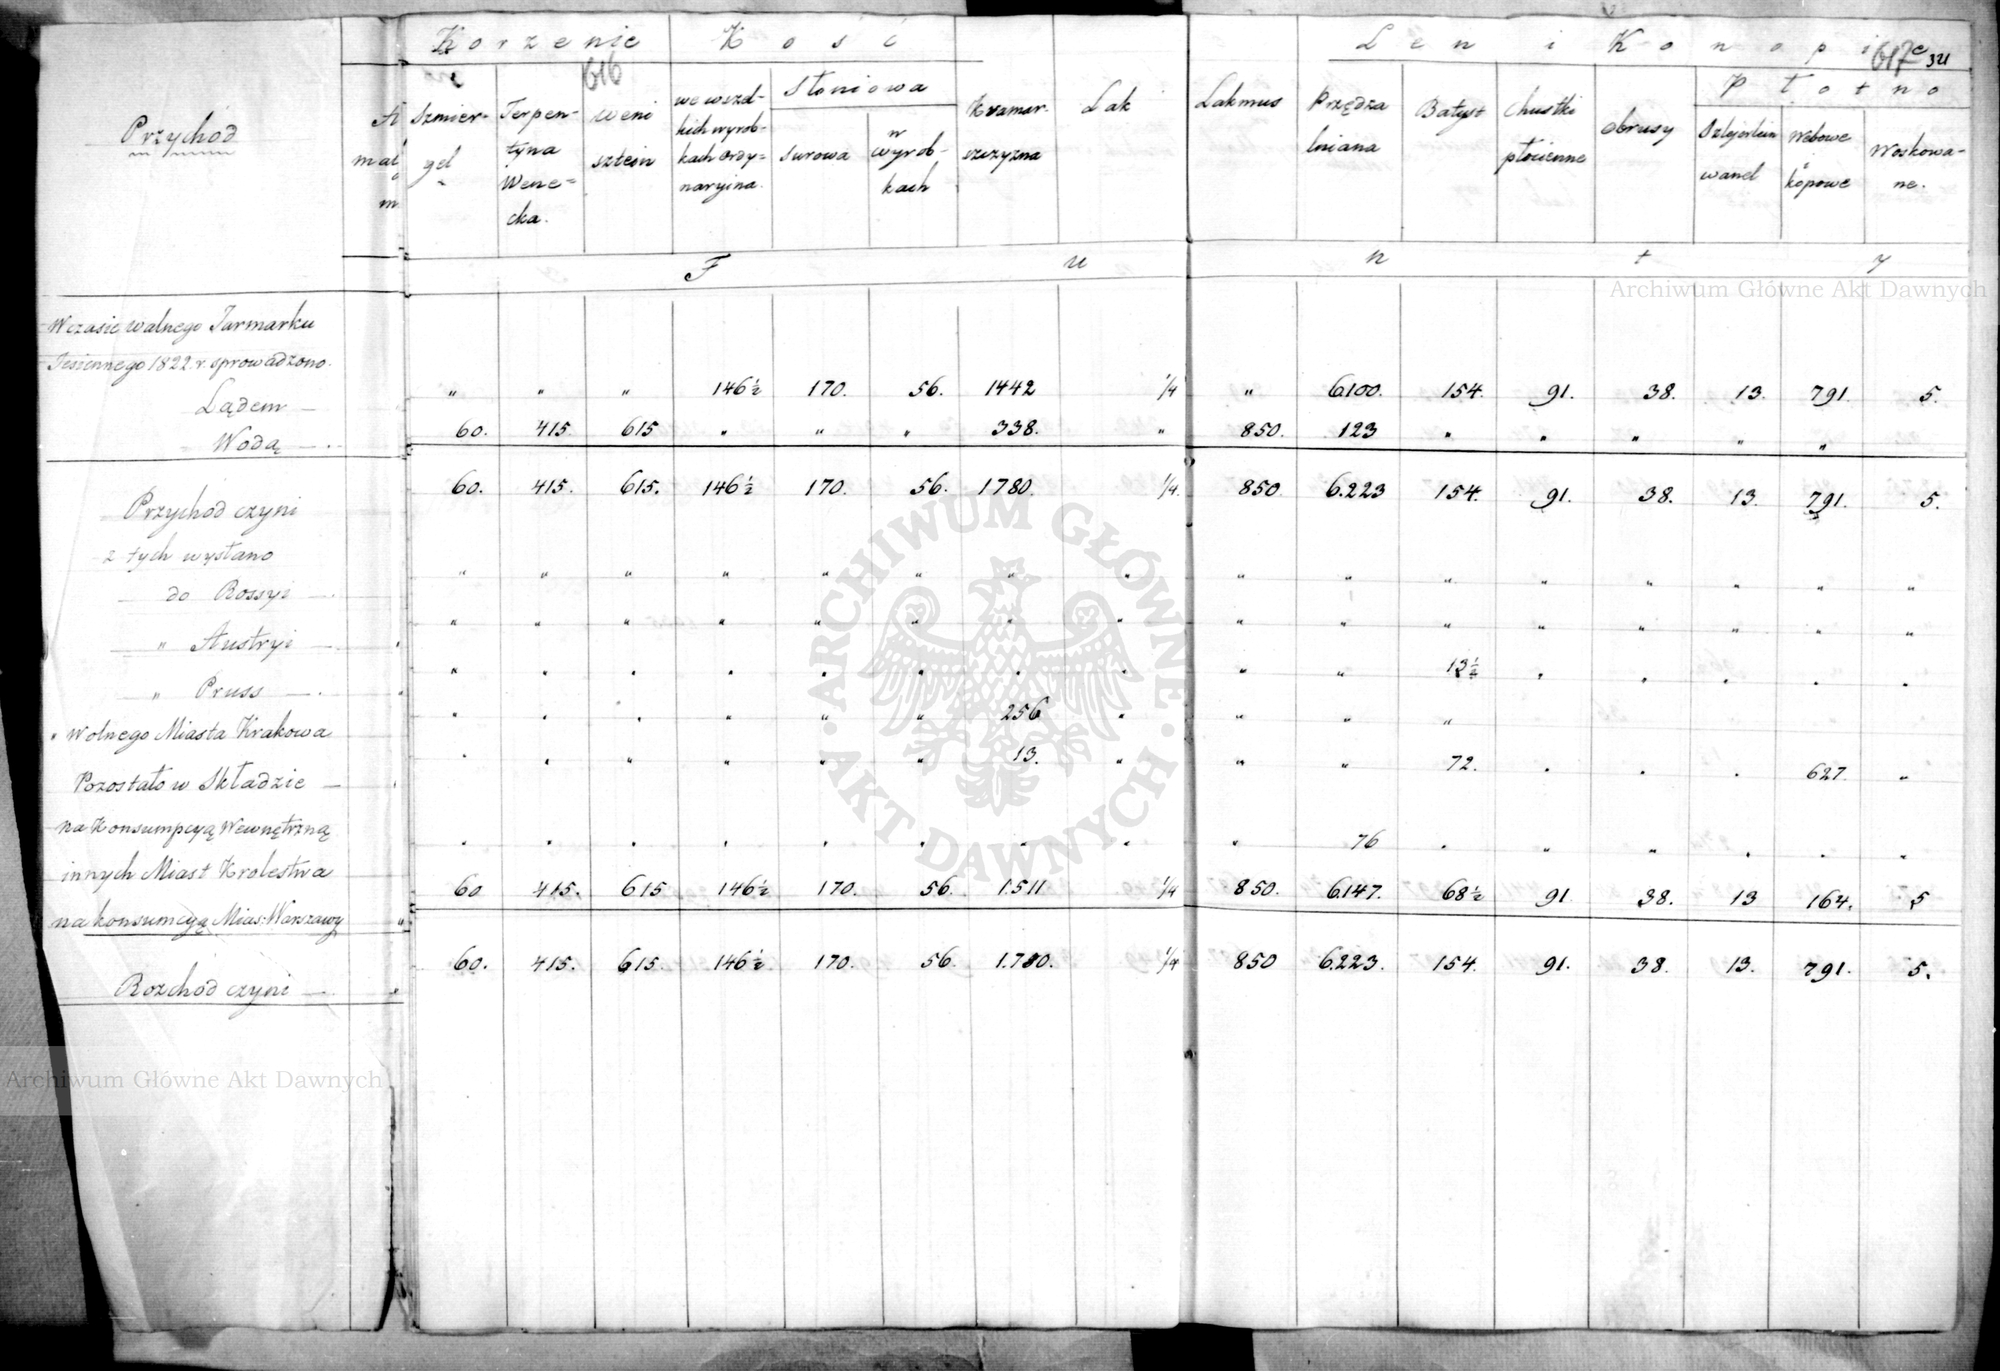 Korzenie Kość Len i Konopie
616 617 321
Przychód
Szmiergel Terpentyna Wenecka. weinsztein we wszelkich wyrobkach ordynaryjna. Słoniowa surowa w wyrobkach Kramarszczyzna Lak Lakmus Przędza lniana Batyst Chustki płócienne obrusy Płótno Webowe i kopowe Woskowane.
F u n t y
Archiwum Główne Akt Dawnych
W czasie walnego Jarmarku
Jesiennego 1822. r. sprowadzono.
Lądem — " " " 146½ 170. 56. 1442 ¼ " 6.100. 154. 91. 38. 13. 791. 5.
Wodą — . 60. 415 615 " " " 338. " 850. 123 " " " " "
Przychód czyni 60. 415. 615. 146½ 170. 56. 1780. ¼. 850 6.223 154. 91. 38. 13. 791. 5.
z tych wysłano
do Rossyi — . " " " " " " " " " " " " " " " "
" Austryi — " " " " " " " " " " " " " " " "
" Pruss — . " " " " " " " " " " 13½ " " " " "
" Wolnego Miasta Krakowa " " " " " " 256 " " " "
Pozostało w Składzie — " " " " " " 13. " " " 72. " " " 627. "
na Konsumpcyą Wewnętrzną
innych Miast Krolestwa " " " " " " " " " 76 " " " " " "
na konsumcyą Mias: Warszawy 60 415. 615 146½ 170. 56. 1.511 ¼ 850. 6.147. 68½ 91. 38. 13 164. 5
Rozchód czyni — 60. 415. 615. 146½ 170. 56. 1.780. ¼ 850 6.223. 154. 91. 38. 13. 791. 5.
ARCHIWUM GŁÓWNE · AKT DAWNYCH ·
Archiwum Główne Akt Dawnych